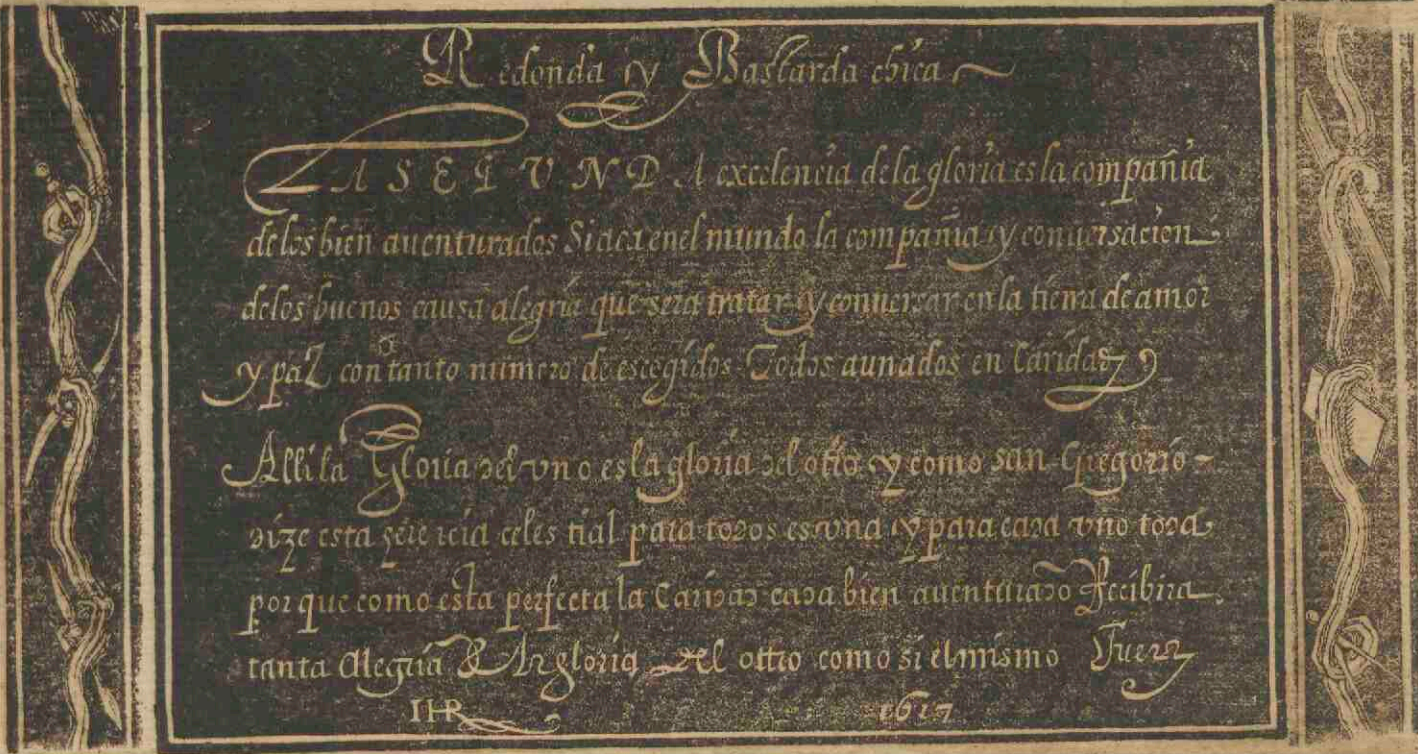 Redonda y Bastarda chica
LA SEGVNDA excelencia de la gloria es la compañia
de los bien auenturados Si aca en el mundo la compañia y conuersacion
de los buenos causa alegria que sera tratar y conuersar en la tierra de amor
y paz con tanto numero de escogidos Todos aunados en Caridad
Alli la Gloria del vno es la gloria del otro y como san Gregorio
dize esta herencia celestial para todos es vna y para cada vno toda
porque como esta perfecta la Caridad cada bien auenturado Recibira
tanta Alegria De la gloria del otro como si el mismo Fuera
IHR 1617